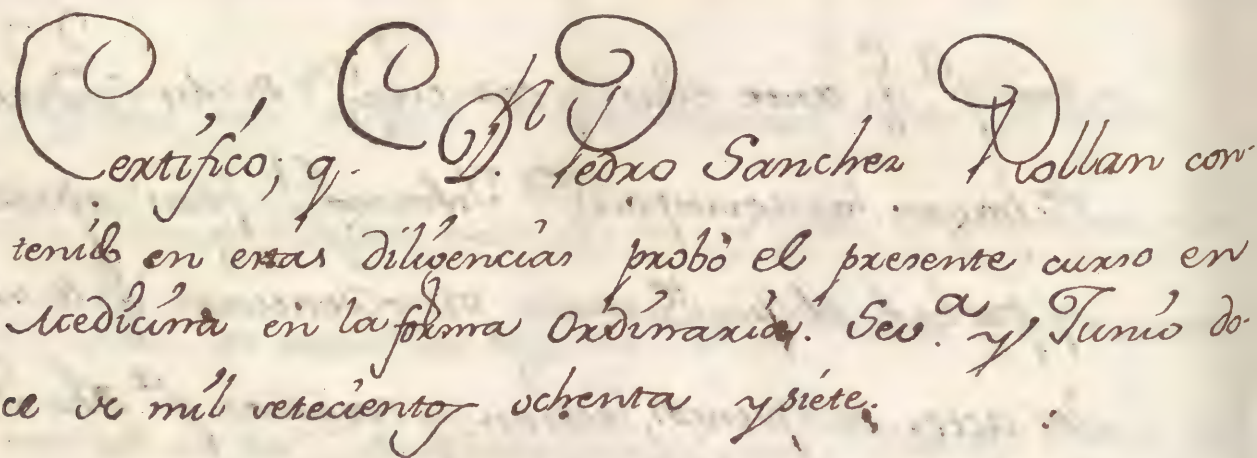 Certifico, q. Dn. Pedro Sanchez Rollan con-
tenido en estas diligencias probó el presente curso en
Medicina en la forma Ordinaria. Sev.a y Junio do-
ce de mil setecientos ochenta y siete.